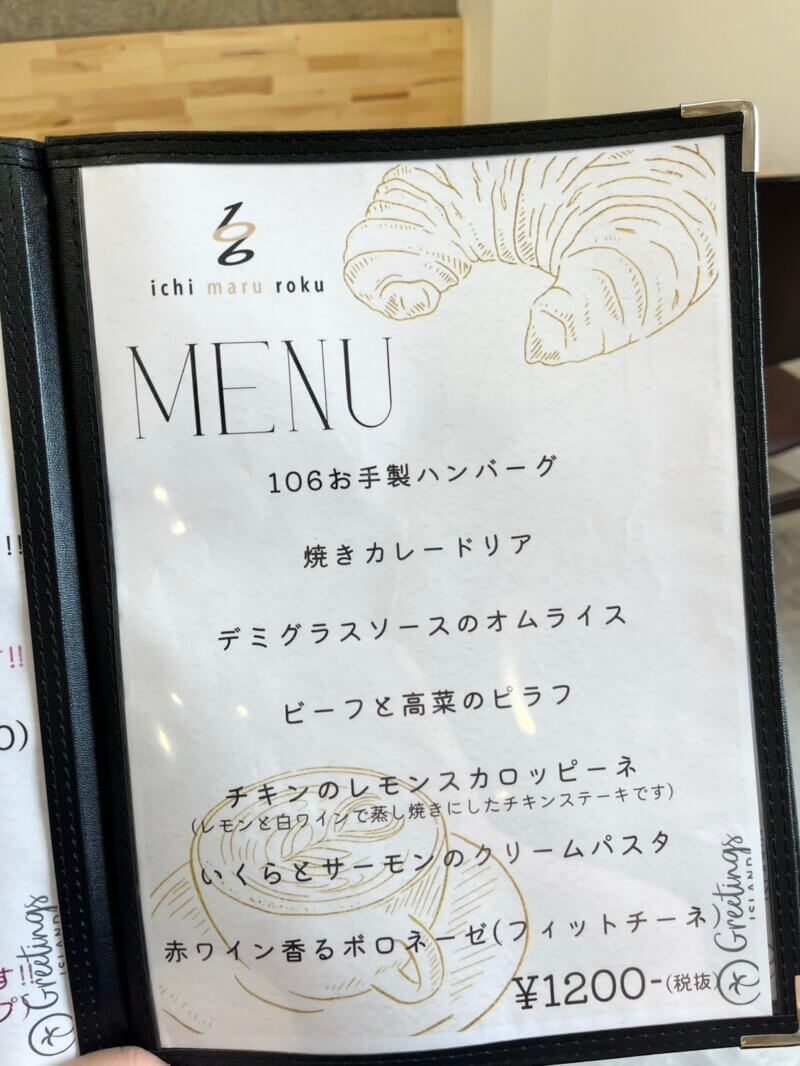 106
ichi maru roku
MENU
106お手製ハンバーグ
焼きカレードリア
デミグラスソースのオムライス
ビーフと高菜のピラフ
チキンのレモンスカロッピーネ
(レモンと白ワインで蒸し焼きにしたチキンステーキです)
いくらとサーモンのクリームパスタ
赤ワイン香るボロネーゼ(フィットチーネ)
¥1200-(税抜)
Greetings
ISLAND
!!
!!
0)
す!!
プ
Greetings
ISLAND